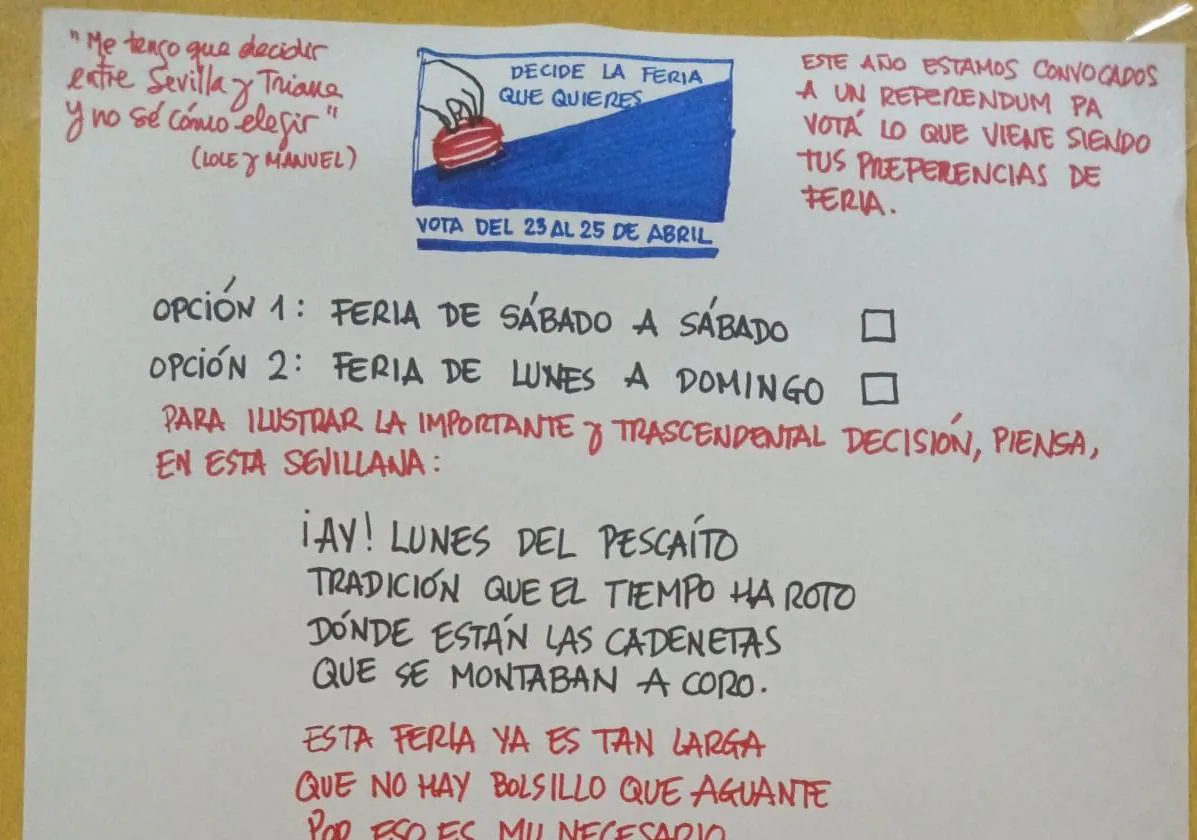 "Me tengo que decidir
entre Sevilla y Triana
y no sé cómo elegir"
(LOLE Y MANUEL)
DECIDE LA FERIA
QUE QUIERES
VOTA DEL 23 AL 25 DE ABRIL
ESTE AÑO ESTAMOS CONVOCADOS
A UN REFERENDUM PA
VOTÁ LO QUE VIENE SIENDO
TUS PREFERENCIAS DE
FERIA.
OPCIÓN 1: FERIA DE SÁBADO A SÁBADO
OPCIÓN 2: FERIA DE LUNES A DOMINGO
PARA ILUSTRAR LA IMPORTANTE y TRASCENDENTAL DECISIÓN, PIENSA,
EN ESTA SEVILLANA:
¡AY! LUNES DEL PESCAÍTO
TRADICIÓN QUE EL TIEMPO HA ROTO
DÓNDE ESTÁN LAS CADENETAS
QUE SE MONTABAN A CORO.
ESTA FERIA YA ES TAN LARGA
QUE NO HAY BOLSILLO QUE AGUANTE
POR ESO ES MU NECESARIO